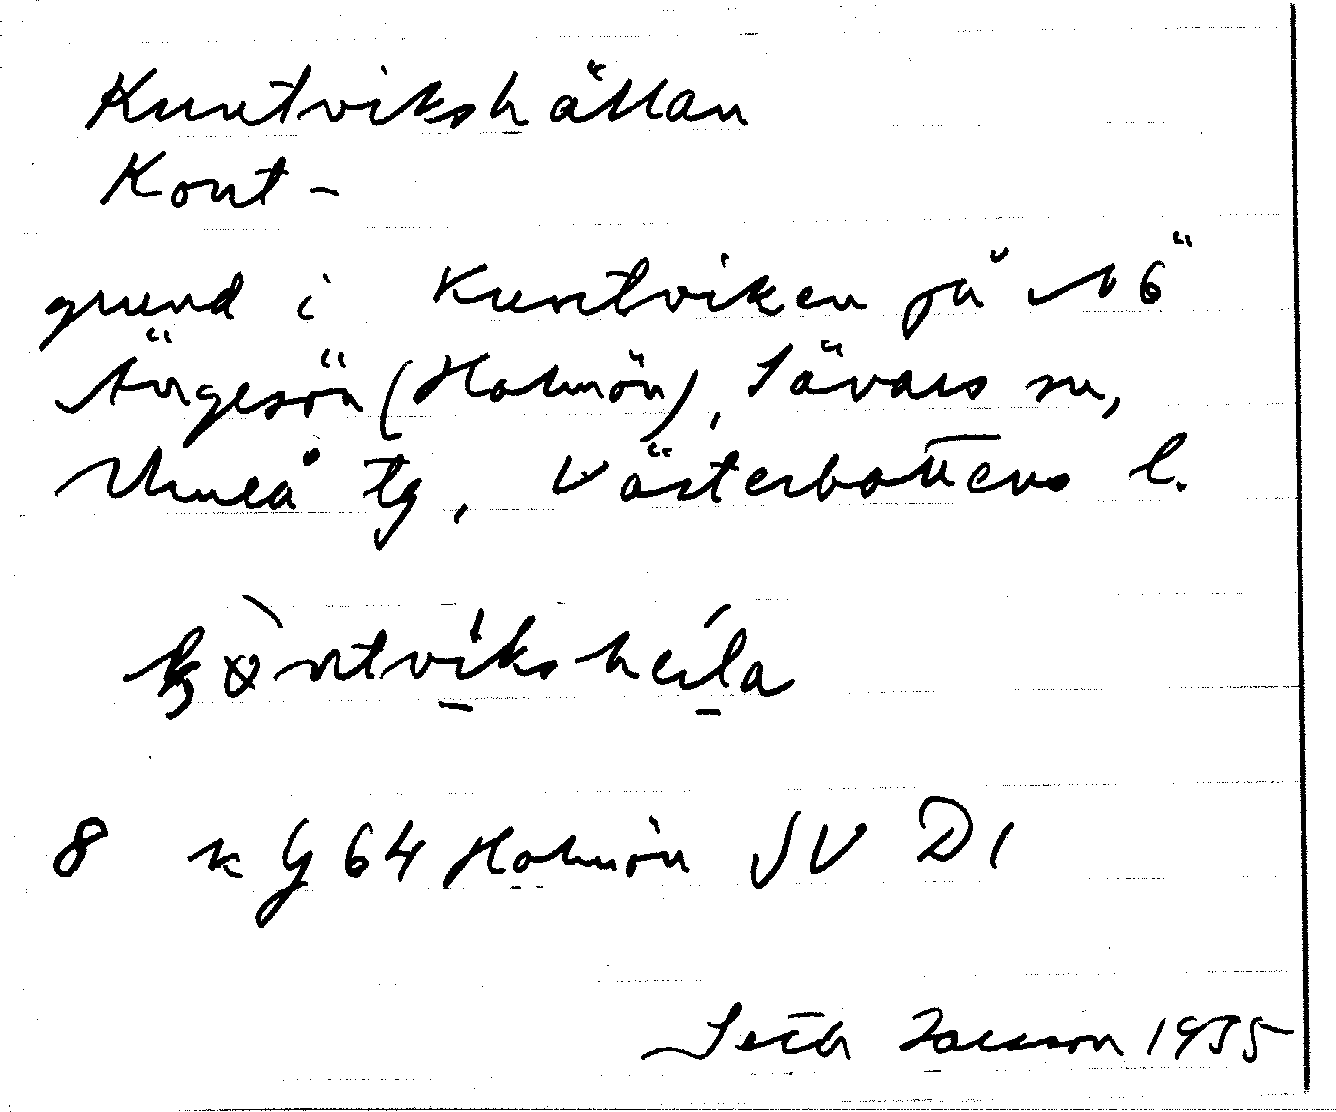 Kuntvikshällan
Kont-
grund i Kuntviken på N 6
Ängesön (Holmön), Sävars sn,
Umeå tg, Västerbottens l.
8 k G 64 Holmön SV D 1
Seth Jansson 1935